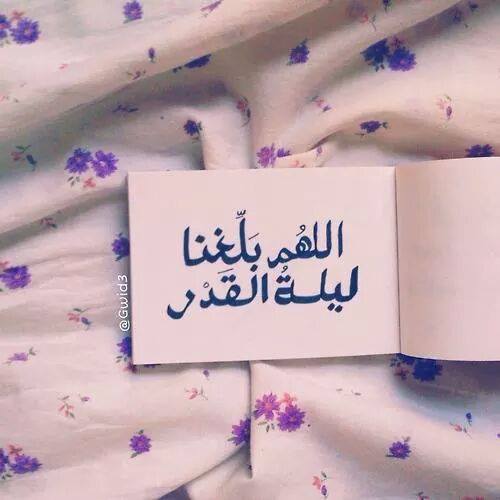 اللهُم بَلِّغنا
ليلةُ القَدْر
@Gwid3